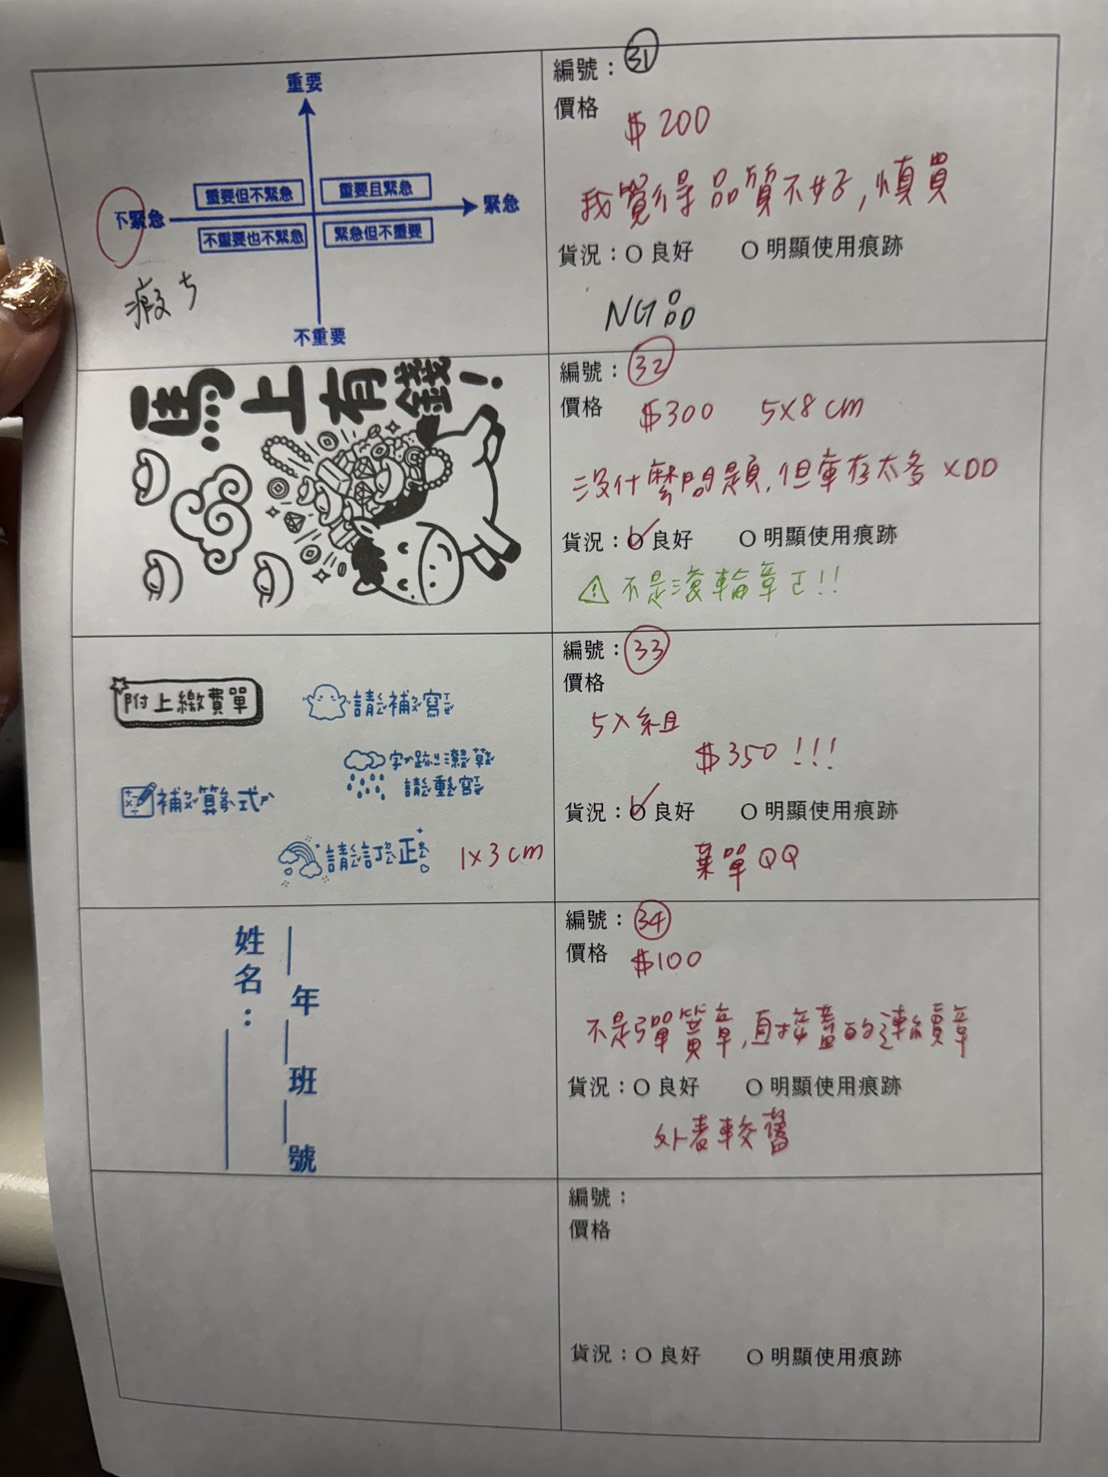 重要
重要但不緊急
重要且緊急
不緊急
緊急
不重要也不緊急
緊急但不重要
不重要
瑕ㄘ
編號：31
價格
$200
我覺得品質不好，慎買
貨況：○良好 ○明顯使用痕跡
NG品
馬上有錢！
編號：32
價格
$300 5x8cm
沒什麼問題，但庫存太多XDD
貨況：○良好 ○明顯使用痕跡
不是滾輪章ㄛ!!
附上繳費單
請補寫
字跡潦草
請重寫
補算式
請訂正
1x3cm
編號：33
價格
5入組
$350!!!
貨況：○良好 ○明顯使用痕跡
棄單QQ
姓名：
年 班 號
編號：34
價格
$100
不是彈簧章，直接蓋的連續章
貨況：○良好 ○明顯使用痕跡
外表較舊
編號：
價格
貨況：○良好 ○明顯使用痕跡